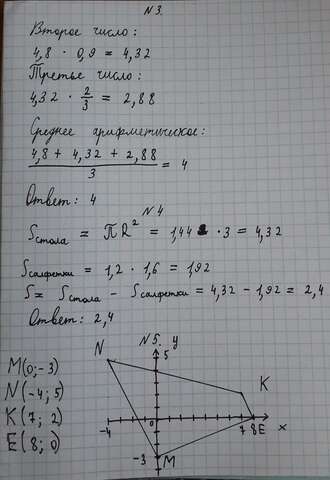 №3.
Второе число:
4,8 · 0,9 = 4,32
Третье число:
4,32 · 2/3 = 2,88
Среднее арифметическое:
4,8 + 4,32 + 2,88 / 3 = 4
Ответ: 4
№4
Sстола = ПR² = 1,44 · 3 = 4,32
Sсалфетки = 1,2 · 1,6 = 1,92
S = Sстола - Sсалфетки = 4,32 - 1,92 = 2,4
Ответ: 2,4
№5.
M(0;-3)
N(-4; 5)
K(7; 2)
E(8; 0)
N y 5
K
-4 0 7 8E x
-3 M